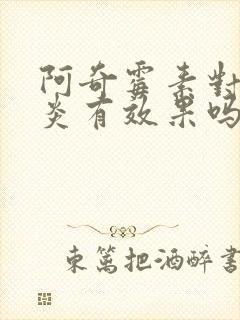 阿奇霉素對
炎有效果吗
東篱把酒醉書